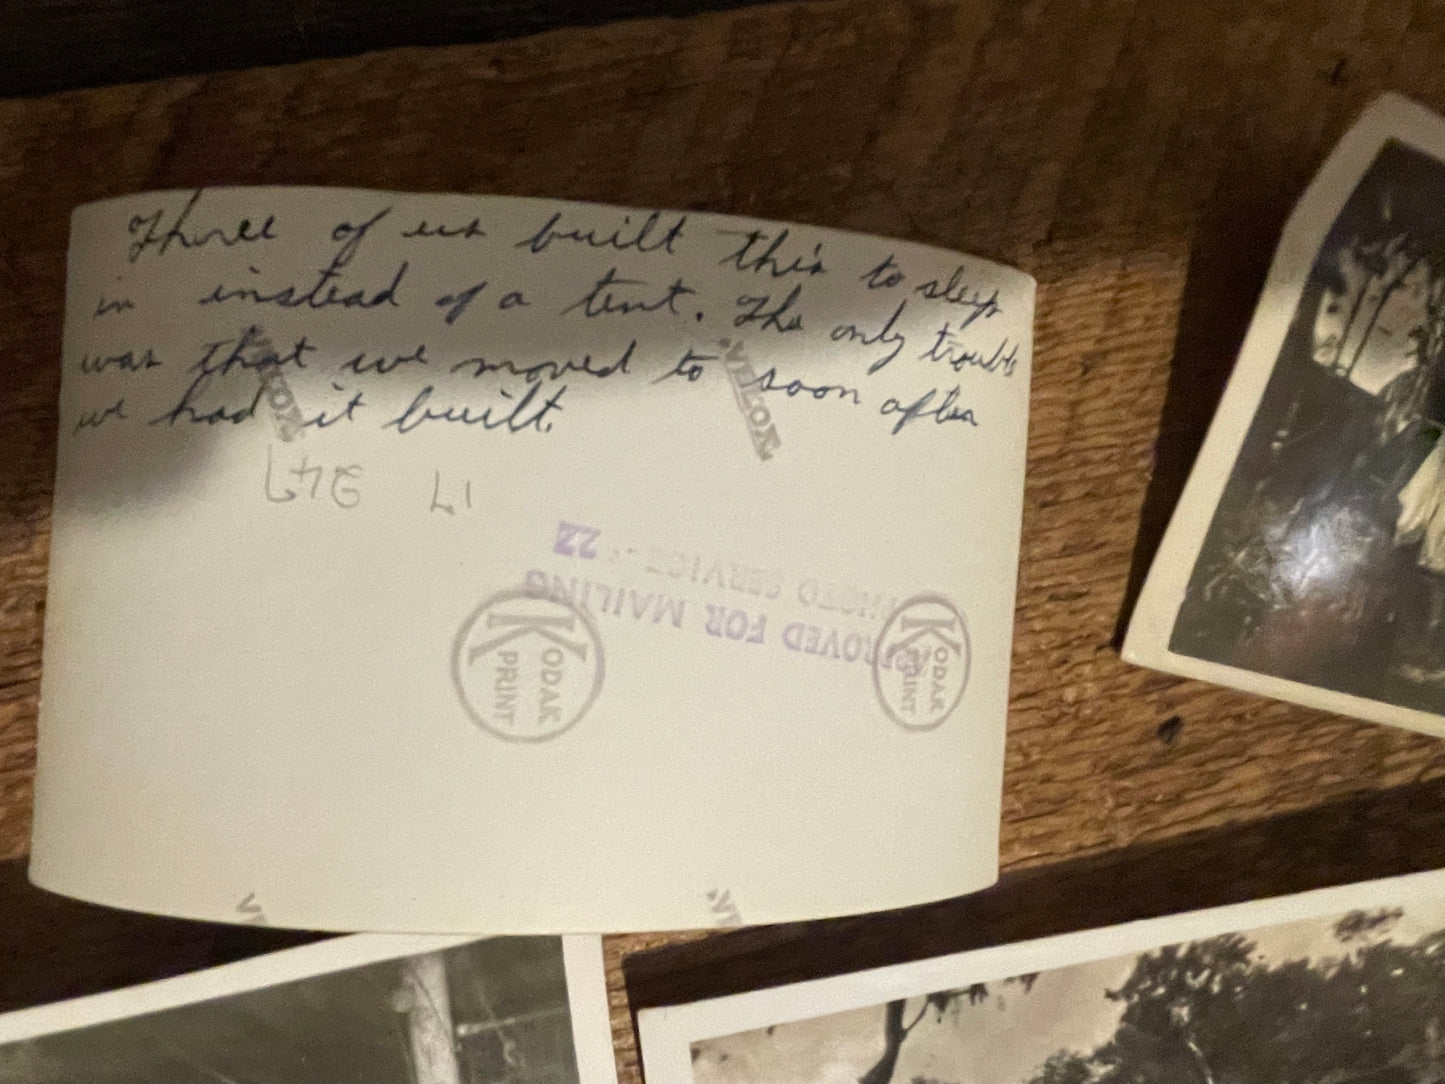 Three of us built this to sleep
in instead of a tent. The only trouble
was that we moved to soon after
we had it built.
247 17
VELOX
PHOTO SERVICE
22
FOR MAILING
KODAK
PRINT
KODAK
PRINT